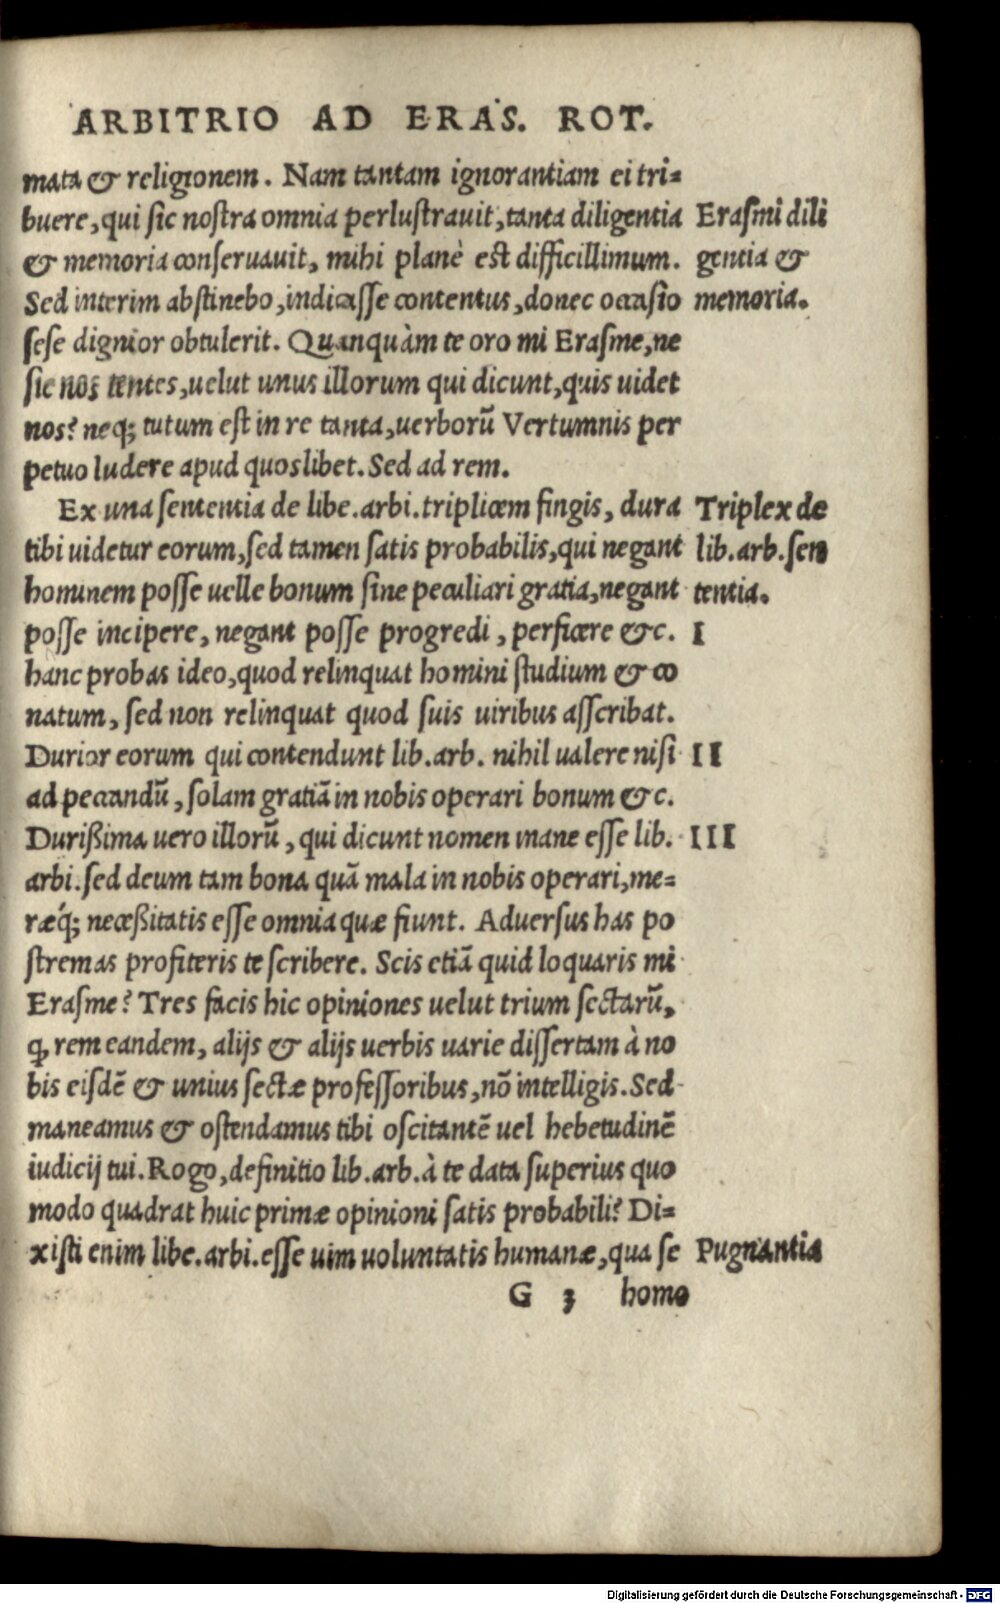 ARBITRIO AD ERAS. ROT.
mata & religionem. Nam tantam ignorantiam ei tri=
buere, qui sic nostra omnia perlustrauit, tanta diligentia Erasmi dili
& memoria conseruauit, mihi planè est difficillimum. gentia &
Sed interim abstinebo, indicasse contentus, donec occasio memoria.
sese dignior obtulerit. Quanquàm te oro mi Erasme, ne
sic nos tentes, uelut unus illorum qui dicunt, quis uidet
nos? neq; tutum est in re tanta, uerborũ Vertumnis per
petuo ludere apud quoslibet. Sed ad rem.
Ex una sententia de libe. arbi. triplicem fingis, dura Triplex de
tibi uidetur eorum, sed tamen satis probabilis, qui negant lib. arb. sen
hominem posse uelle bonum sine peculiari gratia, negant tentia.
posse incipere, negant posse progredi, perficere &c. I
hanc probas ideo, quod relinquat homini studium & co
natum, sed non relinquat quod suis uiribus asscribat.
Durior eorum qui contendunt lib. arb. nihil ualere nisi II
ad peccandũ, solam gratiã in nobis operari bonum &c.
Durißima uero illorũ, qui dicunt nomen inane esse lib. III
arbi. sed deum tam bona quã mala in nobis operari, me=
ræq́; neceßitatis esse omnia quæ fiunt. Aduersus has po
stremas profiteris te scribere. Scis etiã quid loquaris mi
Erasme? Tres facis hic opiniones uelut trium sectarũ,
ꝙ rem eandem, alijs & alijs uerbis uarie dissertam à no
bis eisdẽ & unius sectæ professoribus, nõ intelligis. Sed
maneamus & ostendamus tibi oscitantẽ uel hebetudinẽ
iudicij tui. Rogo, definitio lib. arb. à te data superius quo
modo quadrat huic primæ opinioni satis probabili? Di=
xisti enim libe. arbi. esse uim uoluntatis humanæ, qua se Pugnantia
G 3 homo
Digitalisierung gefördert durch die Deutsche Forschungsgemeinschaft - DFG